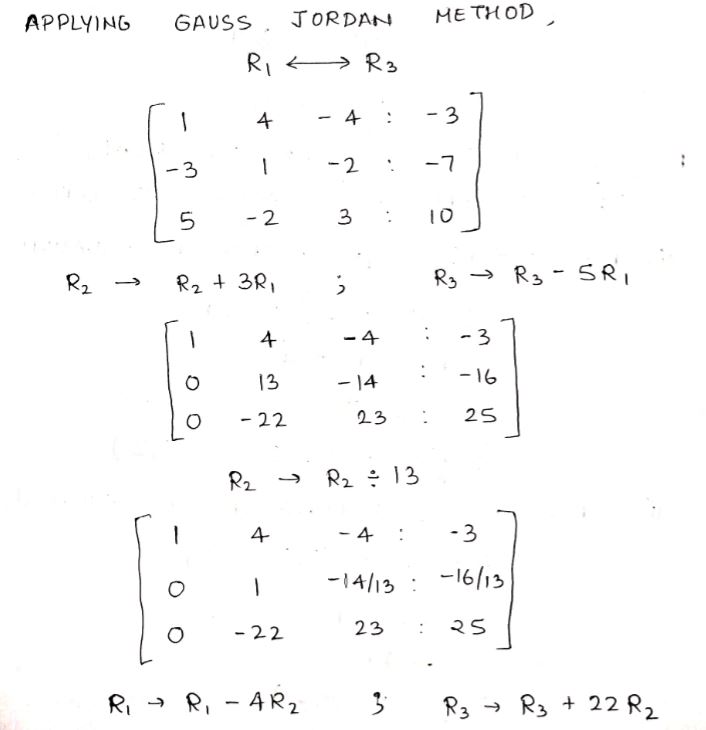 APPLYING GAUSS. JORDAN METHOD,
R₁ ⟷ R₃
1 4 -4 : -3
-3 1 -2 : -7
5 -2 3 : 10
R₂ → R₂ + 3R₁ ; R₃ → R₃ - 5R₁
1 4 -4 : -3
0 13 -14 : -16
0 -22 23 : 25
R₂ → R₂ ÷ 13
1 4 -4 : -3
0 1 -14/13 : -16/13
0 -22 23 : 25
R₁ → R₁ - 4R₂ ; R₃ → R₃ + 22R₂